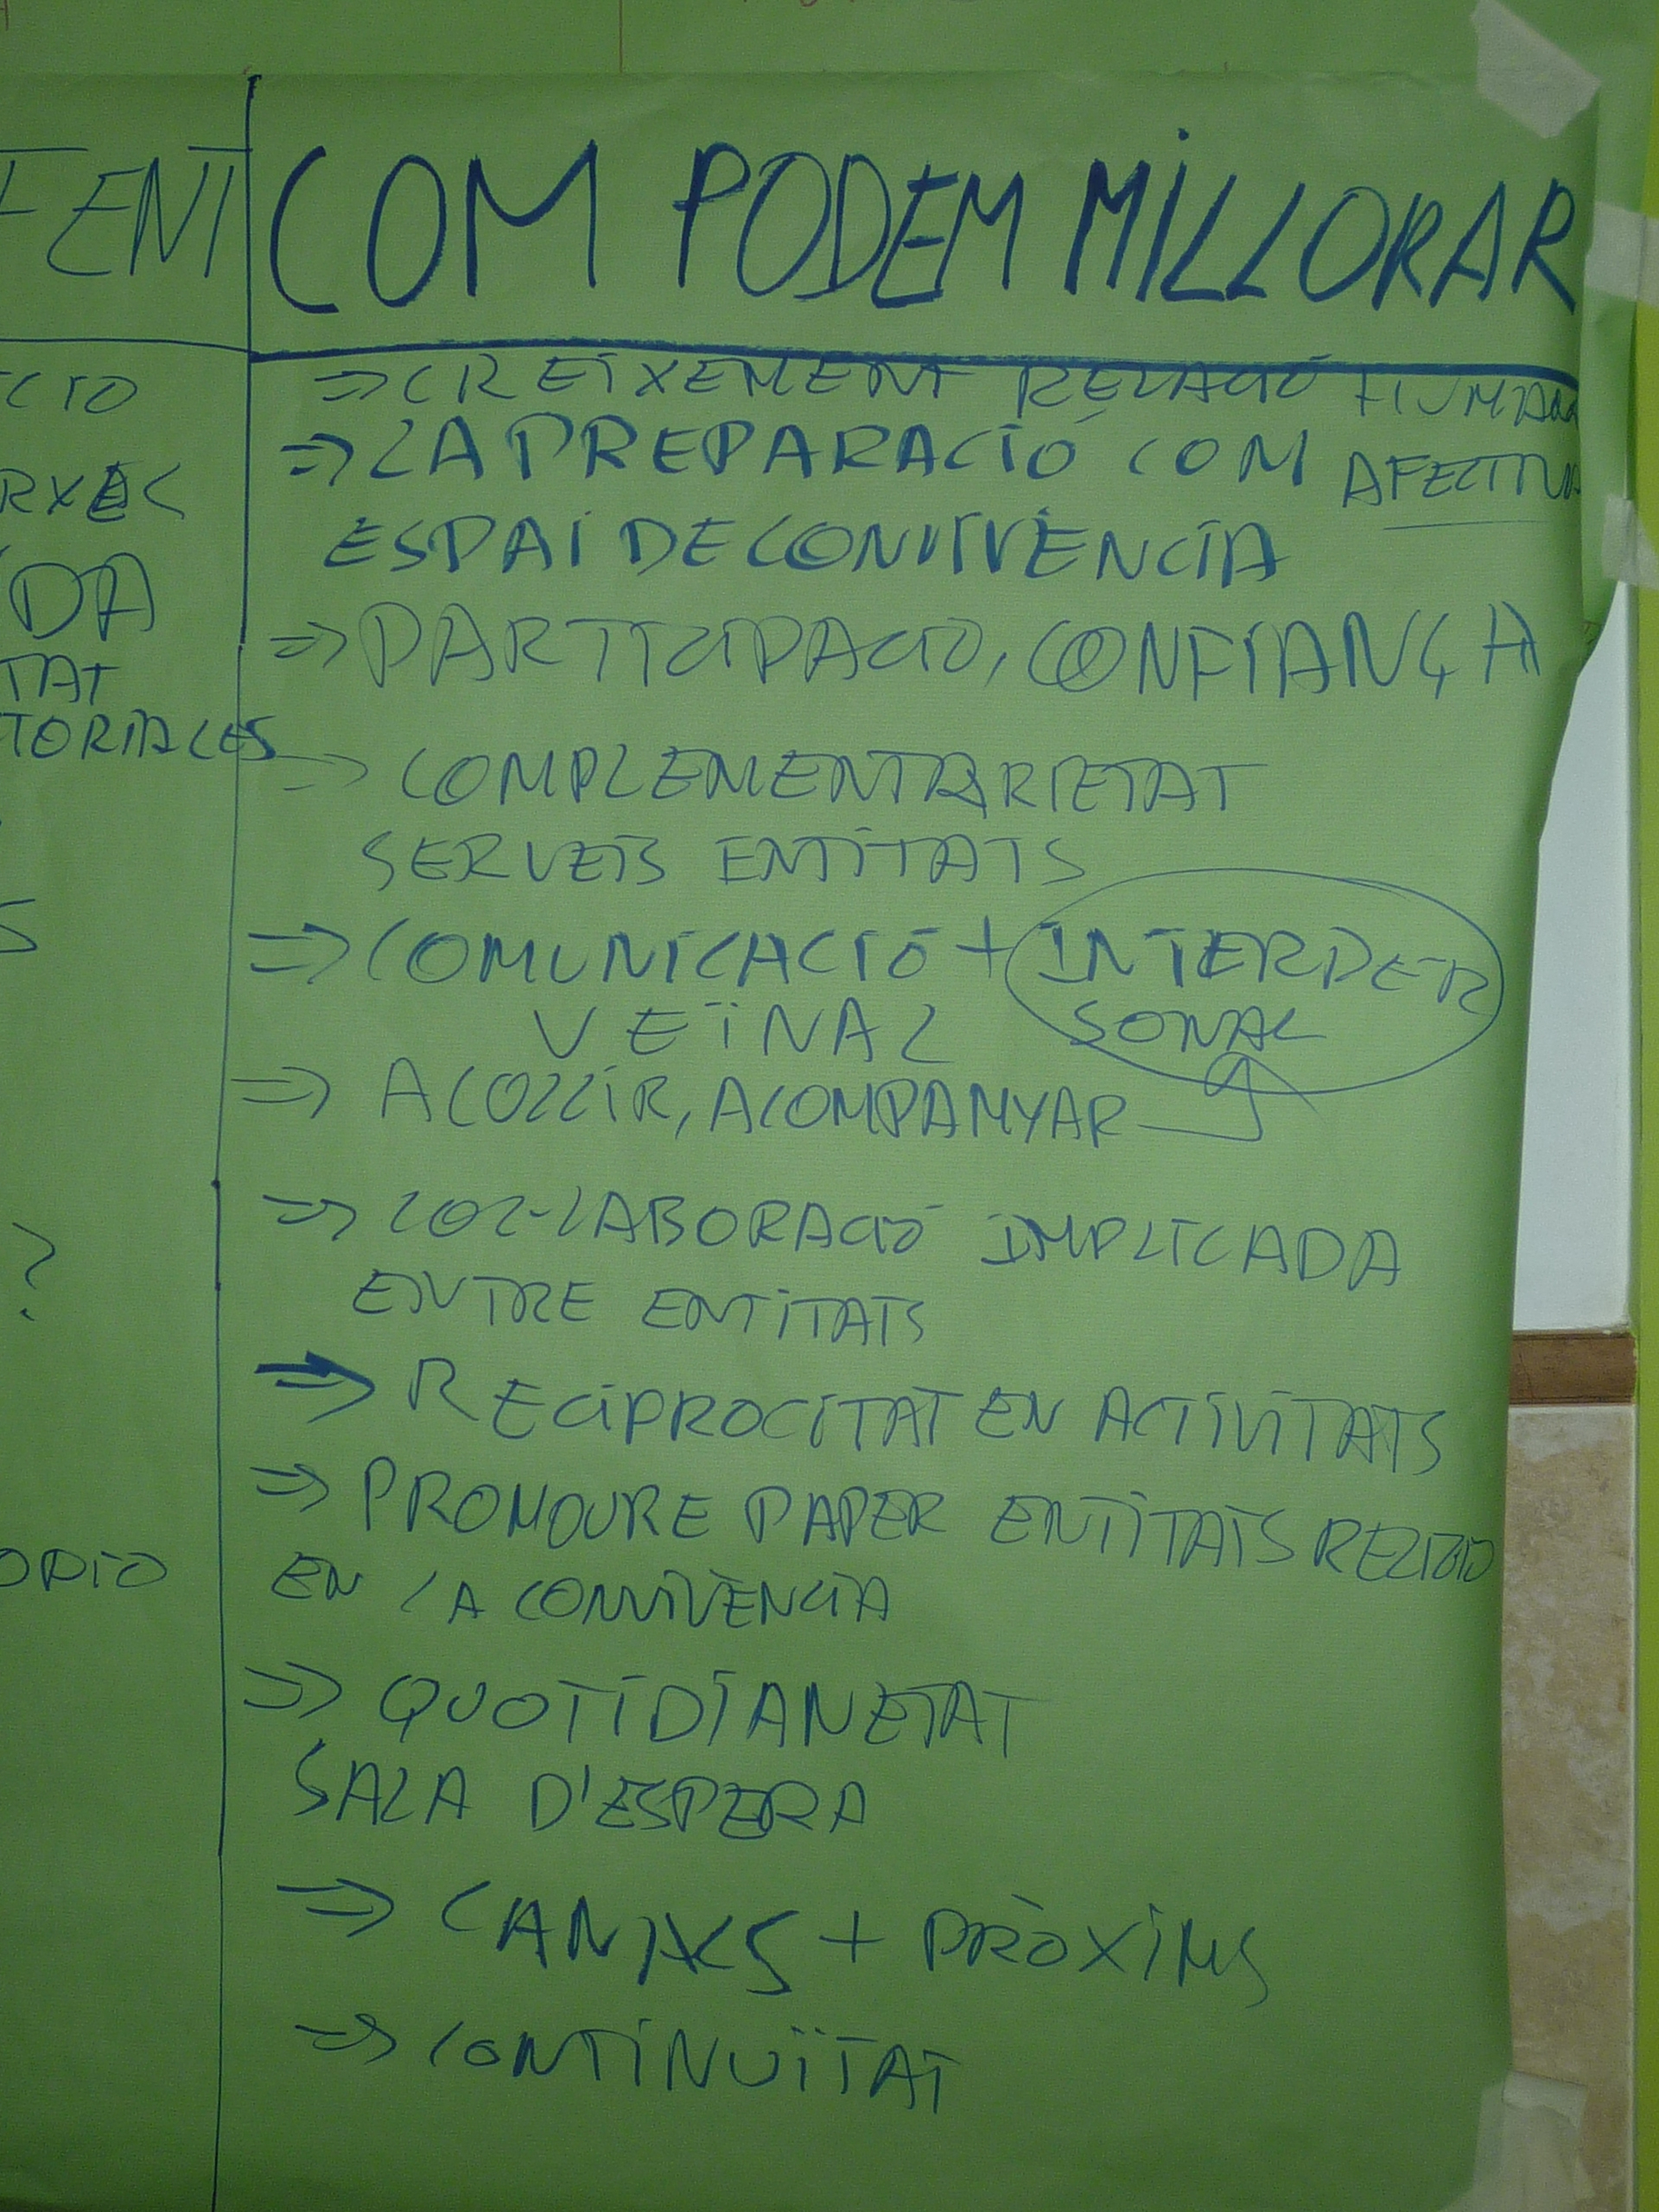 FENT
COM PODEM MILLORAR
⇒ CREIXEMENT RELACIÓ HUMANA
⇒ LA PREPARACIÓ COM AFECTIVA
ESPAI DE CONVIVÈNCIA
⇒ PARTICIPACIÓ, CONFIANÇA
⇒ COMPLEMENTARIETAT
SERVEIS ENTITATS
⇒ COMUNICACIÓ + INTERPER
VEÏNAL SONAL
⇒ ACOLLIR, ACOMPANYAR
⇒ COL·LABORACIÓ IMPLICADA
ENTRE ENTITATS
⇒ RECIPROCITAT EN ACTIVITATS
⇒ PROMOURE PAPER ENTITATS RELIGIO
EN LA CONVIVÈNCIA
⇒ QUOTIDIANETAT
SALA D'ESPERA
⇒ CANALS + PRÒXIMS
⇒ CONTINUÏTAT
CTO
RXES
DA
TAT
TORIALES
S
?
OPIO